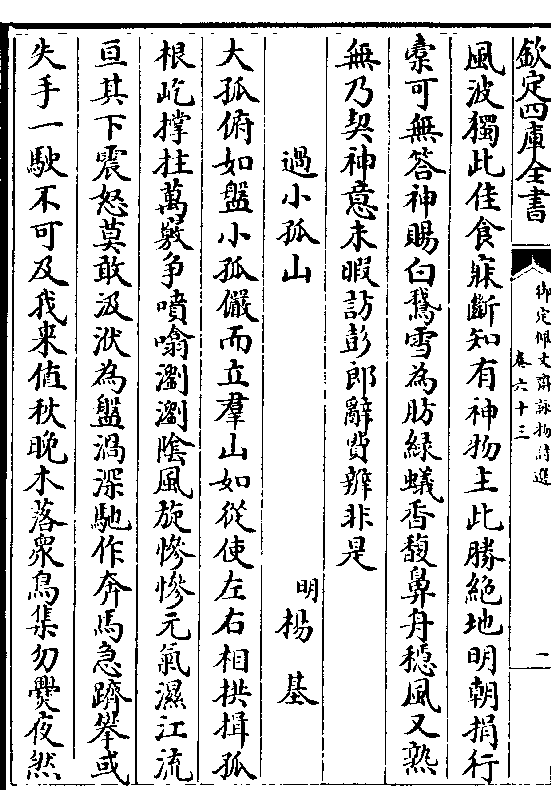 欽定四庫全書
御定佩文齋詠物詩選
卷六十三
二
風波獨此佳食寐斷知有神物主此勝絶地明朝捐行
橐可無答神賜白鵝雪為肪緑蟻香馥鼻舟穩風又熟
無乃契神意未暇訪彭郎辭費辨非是
過小孤山
明楊基
大孤俯如盤小孤儼而立羣山如從使左右相拱揖孤
根屹撑拄萬竅争噴噏瀏瀏隂風旋惨惨元氣濕江流
亘其下震怒莫敢汲洑為盤渦深馳作奔馬急躋攀或
失手一駛不可及我来值秋晚木落衆鳥集勿㸑夜然